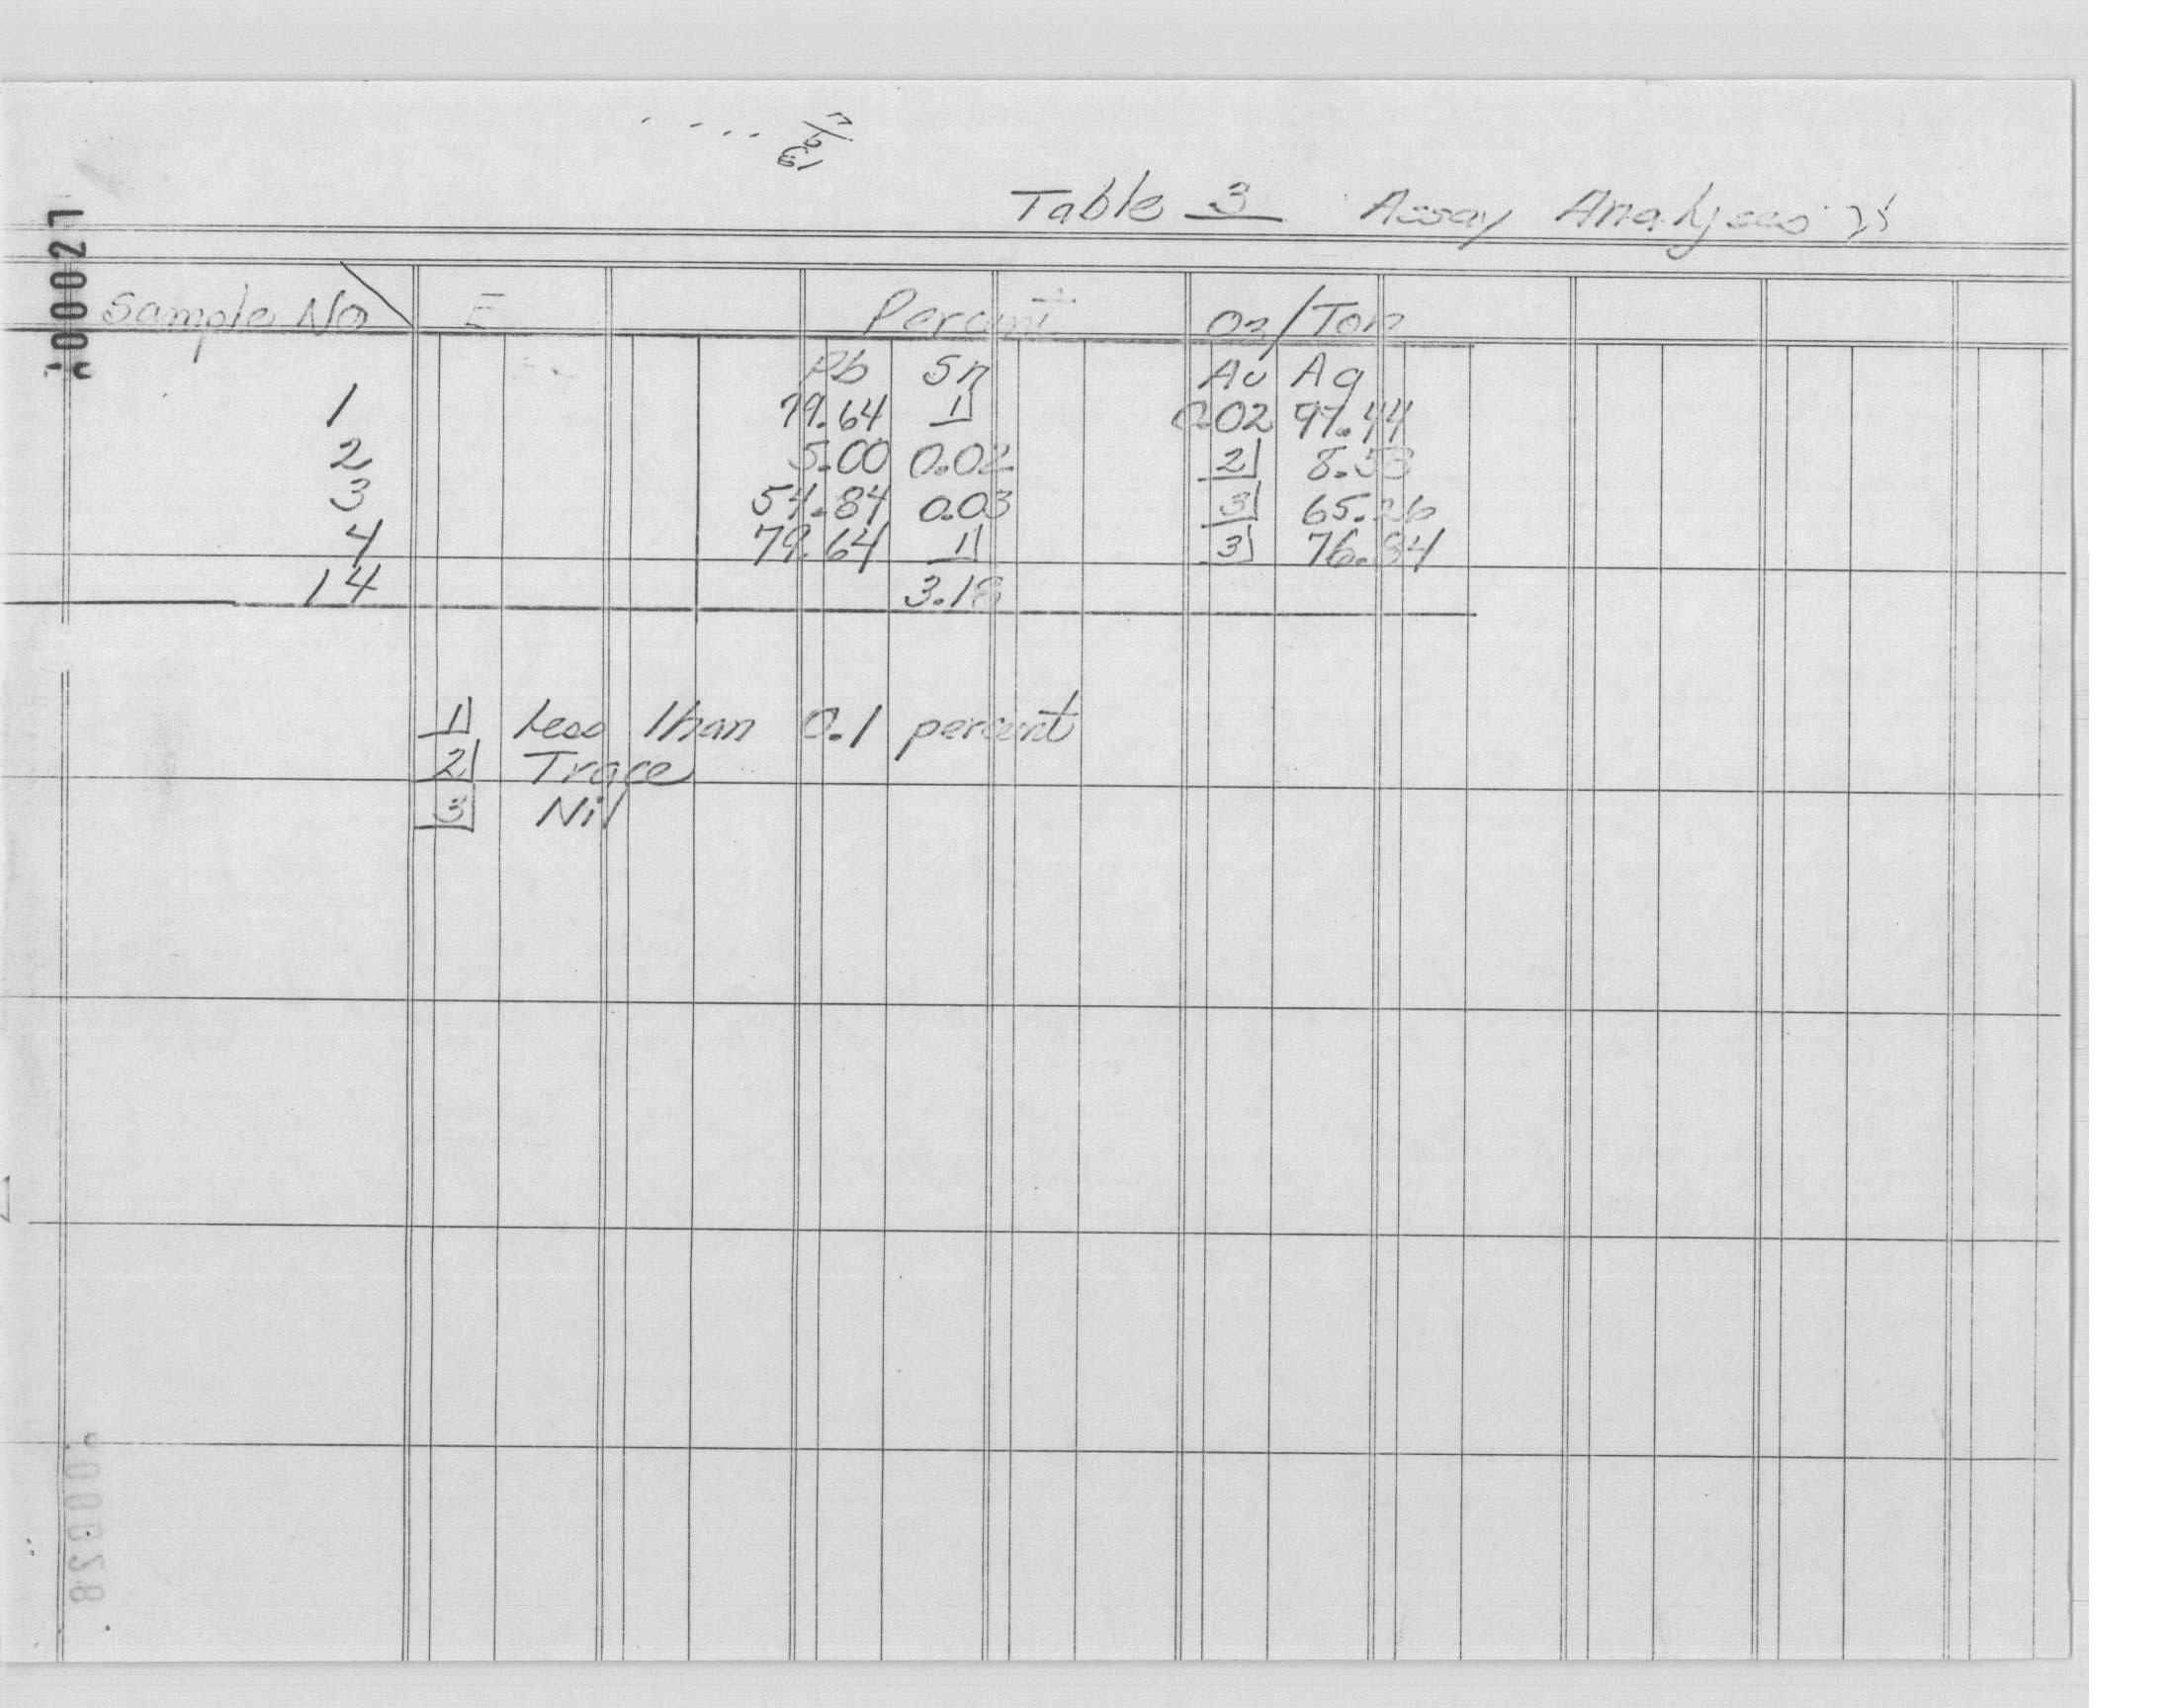 Table 3 Assay Analyses
Sample No E Percent Oz/Ton
Pb Sn Au Ag
1 79.64 1 0.02 97.44
2 5.00 0.02 2 8.58
3 54.84 0.03 3 65.26
4 79.64 1 3 76.84
14 3.18
1 Less than 0.1 percent
2 Trace
3 Nil